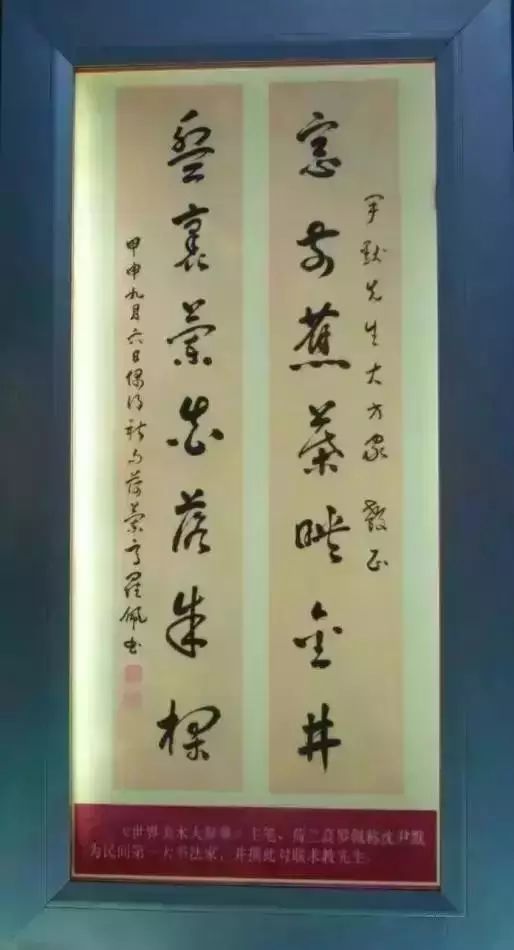 尹默先生大方家 教正
窓前蕉葉映金井
盌裏蘭落朱
甲申九月六日偶得新句荷蘭高羅佩書
《世界美术大辞典》主笔、荷兰高罗佩称沈尹默
为民间第一大书法家，并撰此对联求教先生。